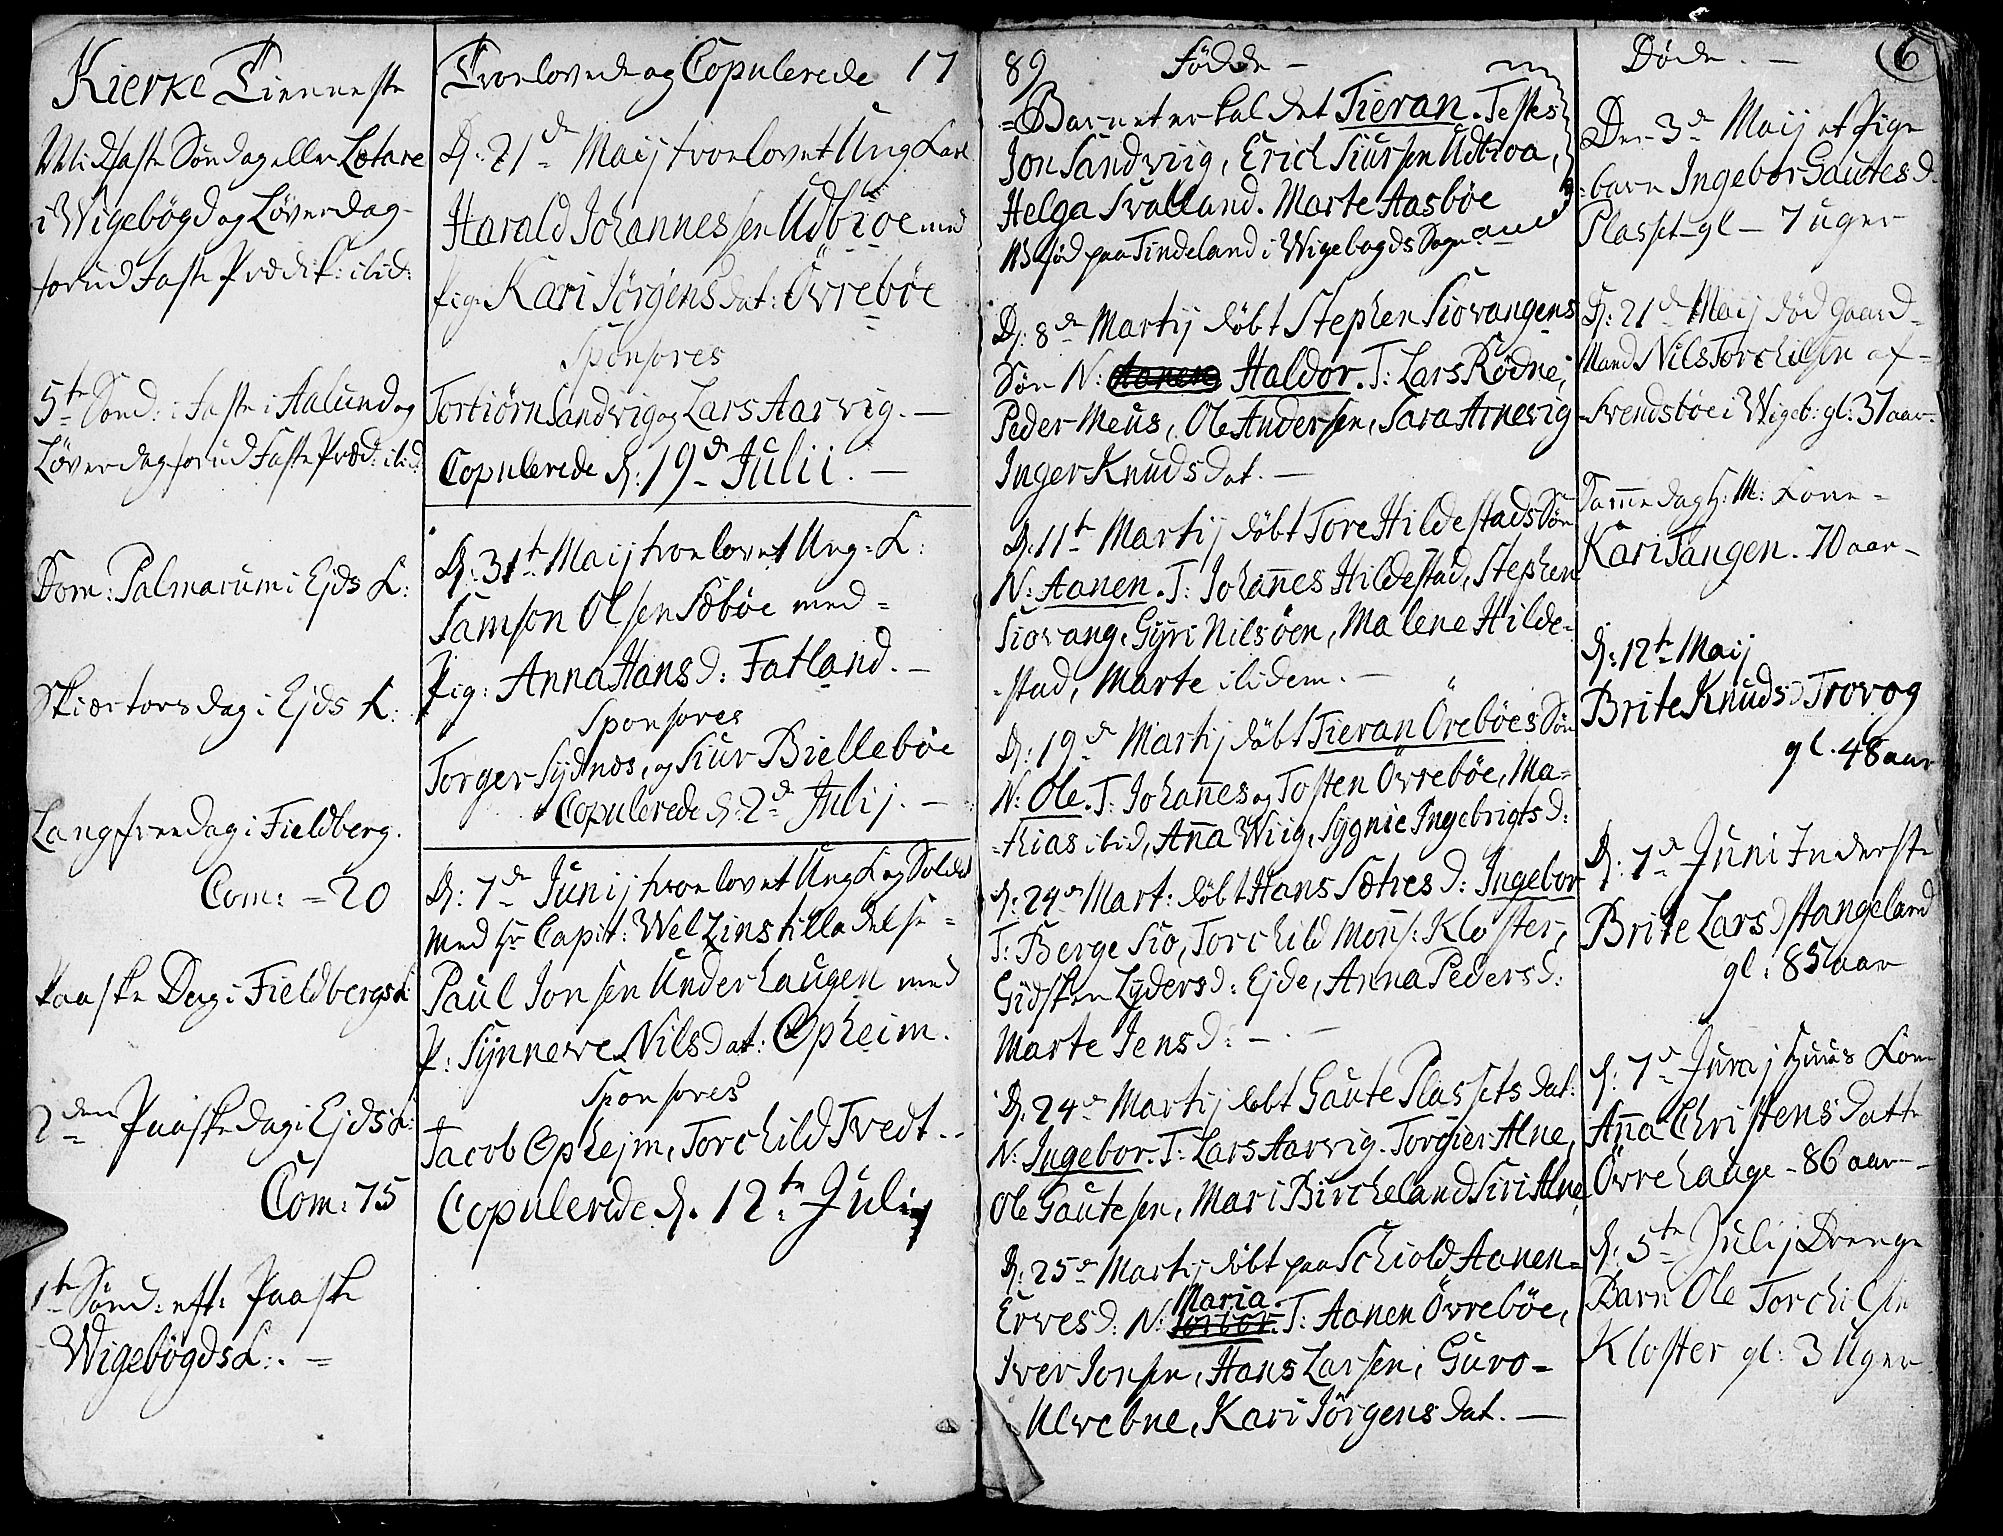 Kierke Tienneste
Midfaste Søndag eller Lætare
i Wigebøgd og Løverdag
forud Faste Prædik: ibid:
5te Sønd: i Faste i Aalund og
Løverdag forud Faste Præd: ibid:
Dom: Palmarum i Ejds K:
Skiærtorsdag i Ejds K:
Langfreedag i Fieldberg.
Com: = 20
Paaske Dag i Fieldbergs K:
2den Paaskedag i Ejds K:
Com: 75
1te Sønd: eft: Paaske
Wigebøgds K: . =
Troelovede og Copulerede 17
D: 21de Maij troelovet Ung Karl
Harald Johannessen Udbioe med
pig: Kari Jörgensdat: Övrebøe
Sponsores
Torbiörn Sandvig og Lars Aarvig. —
Copulerede d: 19de Julii. —
D: 31te Maij troelovet Ung: K:
Samson Olsen Sæbøe med =
pig: Anna Hansd: Fatland. —
Sponsores
Torger Sydnæs, og Siur Biellebøe
Copulerede d: 2de Julij. —
D: 7de Junij troelovet Ung K og Soldat
med Hr Capit: Welzins tilladelse =
Paul Jonsen Underhaugen med
P: Synneve Nilsdat: Opheim.
Sponsores
Jacob Ophejm, Torchild Tvedt..
Copulerede d. 12te Julij
89 Fødde —
= Barnet er kaldet Tieran. Testes
Jon Sandvig, Erich Siursen Udbioa,
Helga Svalland. Marte Aasbøe
NB fød paa Tindeland i Wigebøgds Sogn
D: 8de Martij døbt Stephen Siovangens
Søn N: Haldor. T: Lars Rødne,
Peder Meus, Ole Andersen, Sara Arnevig
Inger Knudsdat. —
D. 11te Martij døbt Tore Hildestads Søn
N: Aanen. T: Johannes Hildestad, Stephen
Siovang, Gyri Nilsöen, Malene Hilde-
-stad, Marte ibidem. —
D: 19de Martij døbt Tieran Örebøes Søn
N: Ole. T: Johannes og Tosten Övrebøe, Ma=
=thias ibid, Anna Wiig, Sygnie Ingebrigtsd:
d: 24de Mart: døbt Hans Sætres d: Ingebor
T: Berge Sio, Torchild Mons: Kloster,
Gidsken Lydersd: Ejde, Anna Pedersd:
Marte Jensd: —
D. 24de Martij døbt Gaute Plassets dat:
N: Ingebor. T: Lars Aarvig. Torgier Alne,
Ole Gautesen, Mari Bircheland Siri Alne
D: 25de Martij døbt paa Schiold Aanen=
Maria.
Erves d: N: T: Aanen Övrebøe,
Iver Jonsen, Hans Larsen, Guro=
Ulvebne, Kari Jörgensdat. —
Døde. — 6
Den 3de Maij et Pige
=barn Ingebor Gautesd.
Plasset gl — 7 uger
D: 21de Maij død Gaard=
Mand Nils Torchilsen af =
Svendsbøe i Wigeb: gl: 37 aar.
Samme dag H: M: Kone =
Kari Tangen. 70 aar —
d: 12te Maij
Brite Knudsd Trovog
gl. 48 aar
D: 7de Juni Inderste
Brite Larsd Stangeland
gl: 85 aar
d: 7de Junij Huus Kone
Anna Christensdatte
Övrehauge - 86 aar —
d: 5te Julij Drenge
Barn Ole Torchilsen
Kloster gl: 3 Uger